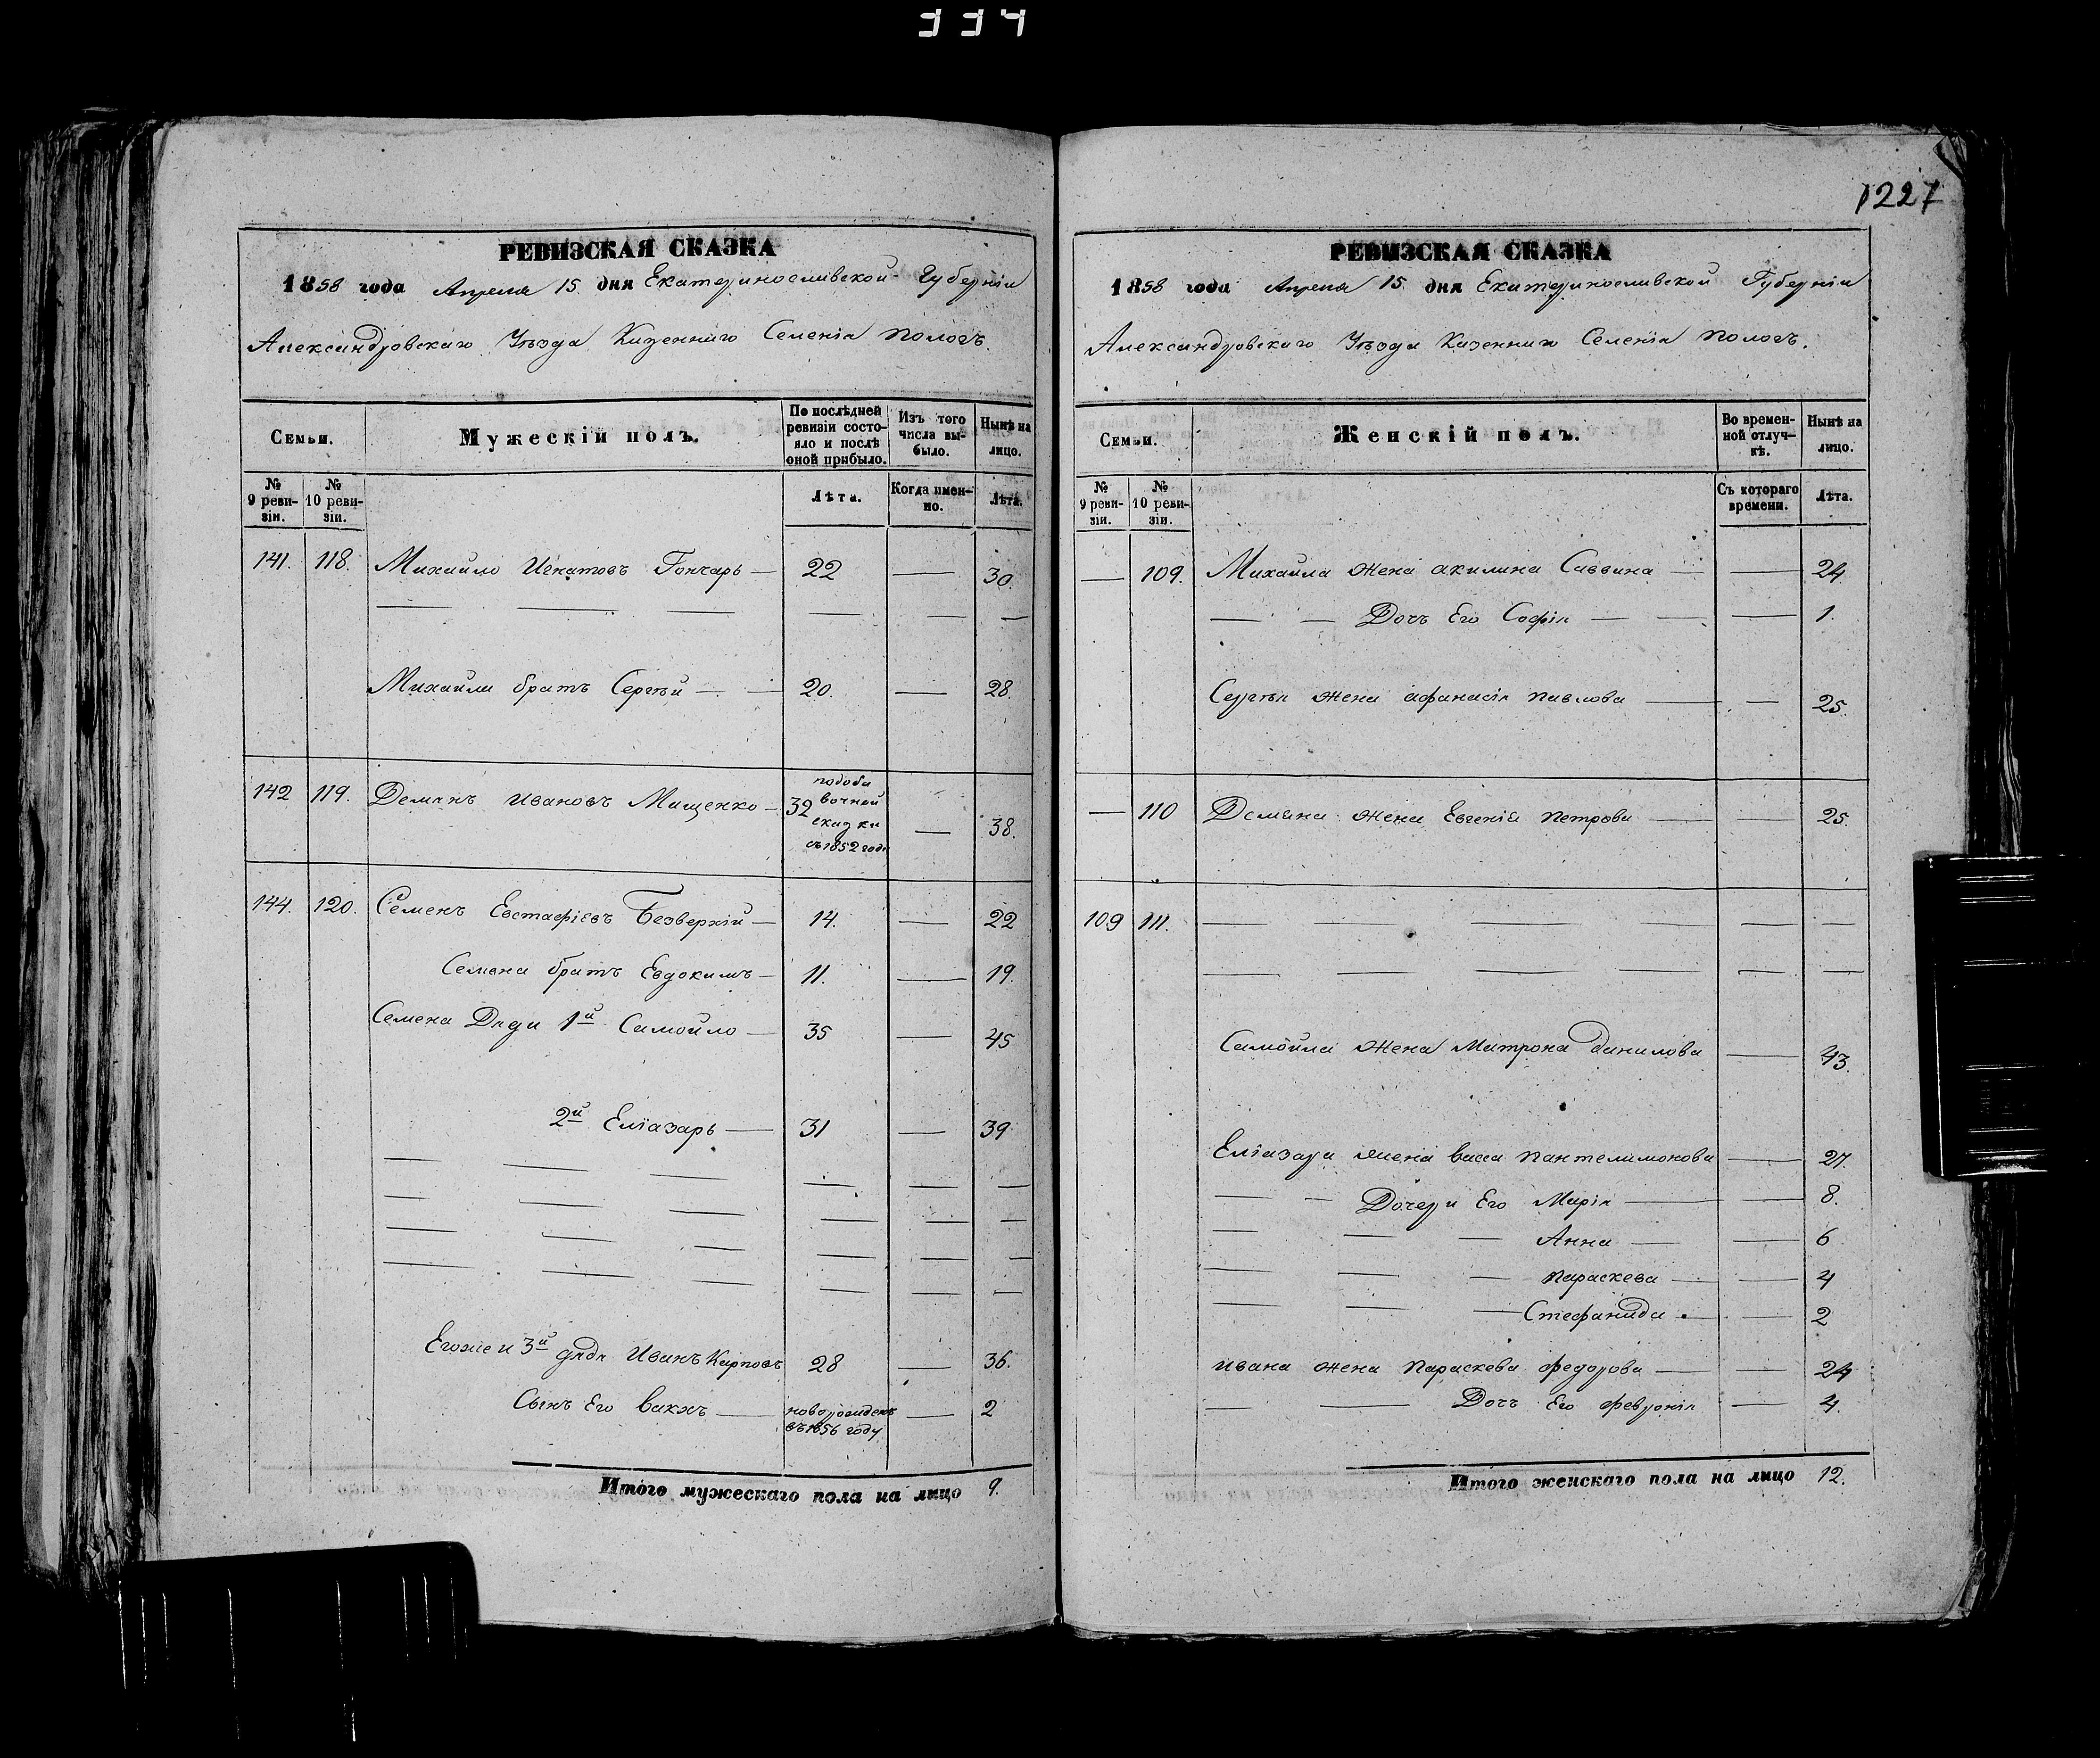 334
1227
РЕВИЗСКАЯ СКАЗКА
1858 года Апреля 15 дня Екатеринославской Губерніи
Александровскаго Уѣзда Казеннаго Селенія Пологъ.
Семьи. Мужескій полъ. По послѣдней ревизіи состояло и послѣ оной прибыло. Изъ того числа выбыло. Нынѣ на лицо.
№ 9 ревизіи. № 10 ревизіи. Лѣта. Когда именно. Лѣта.
141. 118. Михайло Игнатовъ Гончарь — 22 — 30.
Михайла братъ Сергѣй — 20. — 28.
142 119. Демянъ Ивановъ Мищенко — 32 подоба вочной сказки съ 1852 года — 38.
144. 120. Семенъ Евстафіевъ Безверхій — 14. — 22
Семена братъ Евдокимъ — 11. — 19.
Семена Дяди 1й Самойло — 35 — 45
2й Еліазарь — 31 — 39
Егоже и 3й дядя Иванъ Карповъ 28 — 36.
Сынъ Его Вакхъ — новорожденъ въ 1856 году — 2
Итого мужескаго пола на лицо 9.
РЕВИЗСКАЯ СКАЗКА
1858 года Апреля 15 дня Екатеринославской Губерніи
Александровскаго Уѣзда Казеннаго Селенія Пологъ.
Семьи. Женскій полъ. Во временной отлучкѣ. Нынѣ на лицо.
№ 9 ревизіи. № 10 ревизіи. Съ котораго времени. Лѣта.
— 109. Михайла жена акилина Саввина — — 24.
— — Дочь Его Софія — — — 1.
Сергѣя жена афанасія павлова — — 25.
— 110 Демяна жена Евгенія петрова — — 25.
109 111. — — — — — —
Самойла жена Матрона Данилова — 43.
Еліазара жена васса пантелимонова — 27.
— — Дочери Его Марія — — 8.
— — — Анна — — 6
— — — параскева — — 4
— — — Стефанида — — 2
ивана жена параскева федорова — — 24
— — Дочь Его февронія — 4.
Итого женскаго пола на лицо 12.